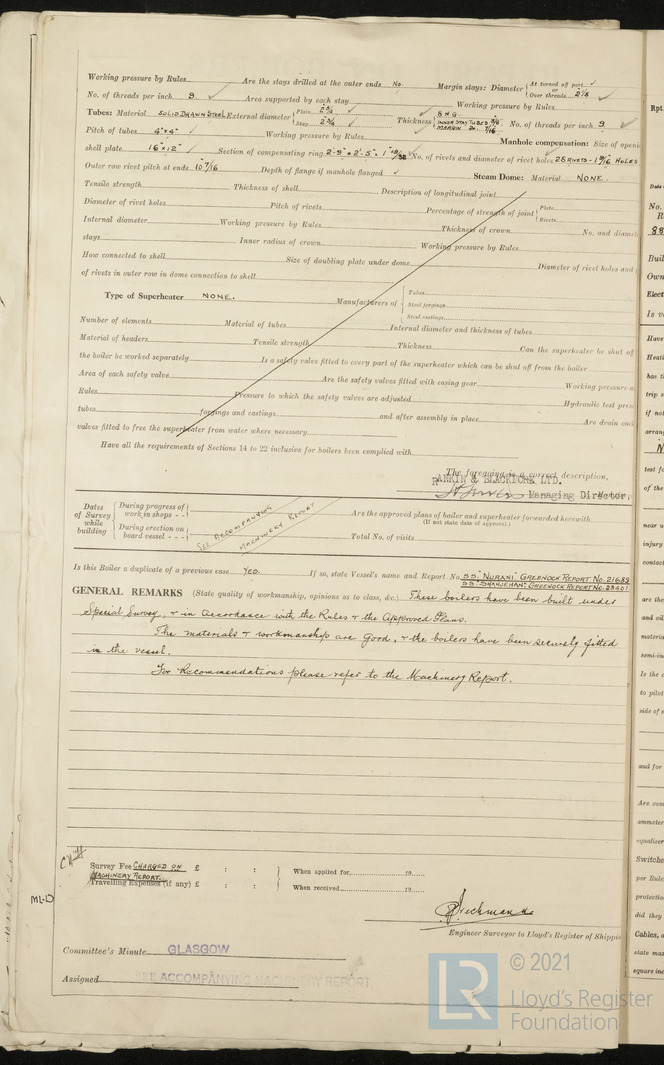 Working pressure by Rules Are the stays drilled at the outer ends No. Margin stays: Diameter { At turned off part or Over threads 2 1/8
No. of threads per inch 9. Area supported by each stay Working pressure by Rules
Tubes: Material SOLID DRAWN STEEL External diameter { Plain 2 3/4 Stay 2 3/4 Thickness { 8 W.G. No. of threads per inch 9
Pitch of tubes 4"×4" Working pressure by Rules Manhole compensation: Size of openi
shell plate 16"×12" Section of compensating ring 2'-9"×2'-5"× No. of rivets and diameter of rivet holes 28 RIVETS - 1 9/16 HOLES
Outer row rivet pitch at ends 10 7/16 Depth of flange if manhole flanged Steam Dome: Material NONE.
Tensile strength Thickness of shell Description of longitudinal joint
Diameter of rivet holes Pitch of rivets Percentage of strength of joint { Plate Rivets
Internal diameter Working pressure by Rules Thickness of crown No. and diame
stays Inner radius of crown Working pressure by Rules
How connected to shell Size of doubling plate under dome Diameter of rivet holes and
of rivets in outer row in dome connection to shell
Type of Superheater NONE. Manufacturers of { Tubes Steel forgings Steel castings
Number of elements Material of tubes Internal diameter and thickness of tubes
Material of headers Tensile strength Thickness Can the superheater be shut of
the boiler be worked separately Is a safety valve fitted to every part of the superheater which can be shut off from the boiler
Area of each safety valve Are the safety valves fitted with easing gear Working pressure a
Rules Pressure to which the safety valves are adjusted Hydraulic test pres
tubes forgings and castings and after assembly in place Are drain coc
valves fitted to free the superheater from water where necessary
Have all the requirements of Sections 14 to 22 inclusive for boilers been complied with
The foregoing is a correct description,
RANKIN & BLACKMORE LTD.
Managing Director.
Dates of Survey while building { During progress of work in shops - - During erection on board vessel - - -
SEE ACCOMPANYING MACHINERY REPORT
Are the approved plans of boiler and superheater forwarded herewith
(If not state date of approval.)
Total No. of visits
Is this Boiler a duplicate of a previous case Yes. If so, state Vessel's name and Report No. SS. "NURANI" GREENOCK REPORT No. 21689
SS. "SHAHJEHAN" GREENOCK REPORT No. 23401
GENERAL REMARKS (State quality of workmanship, opinions as to class, &c.) These boilers have been built under
Special Survey, & in accordance with the Rules & the Approved Plans.
The materials & workmanship are good, & the boilers have been securely fitted
in the vessel.
For Recommendations please refer to the Machinery Report.
Survey Fee CHARGED ON MACHINERY REPORT. £ : : When applied for 19
Travelling Expenses (if any) £ : : When received 19
ML-D
Engineer Surveyor to Lloyd's Register of Shippin
Committee's Minute GLASGOW
Assigned SEE ACCOMPANYING MACHINERY REPORT
LR © 2021
Lloyd's Register
Foundation
Rpt.
Date
No.
88
Buil
Own
Elect
Is v
Have
Heati
has t
trip s
if not
arran
N
test f
of the
near w
injury
contact
are the
and oil
materia
semi-in
Is the c
to pilot
side of s
and for
Are com
ammeter
equaliser
Switche
per Rule
protectio
did they
Cables, a
state max
square inc